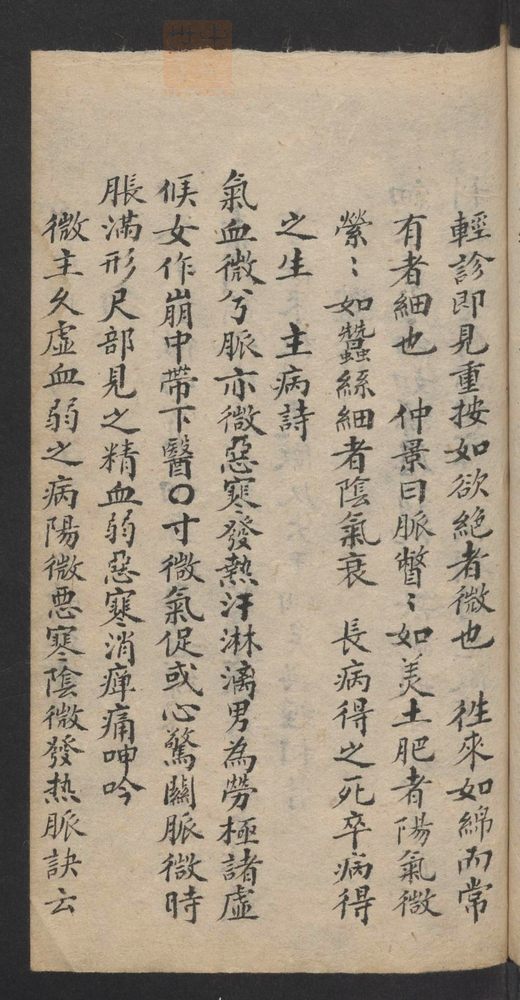 輕診即見重按如欲絕者微也　徃來如綿而常
有者細也　仲景曰脈瞥〻如羙土肥者陽氣微
縈〻如蠶絲細者陰氣衰　長病得之死卒病得
之生　主病詩
氣血微兮脈亦微惡寒發熱汗淋漓男為勞極諸虛
候女作崩中帶下醫〇寸微氣促或心驚關脈微時
脹滿形尺部見之精血弱惡寒消癉痛呻吟
微主久虛血弱之病陽微惡寒陰微發熱脈訣云